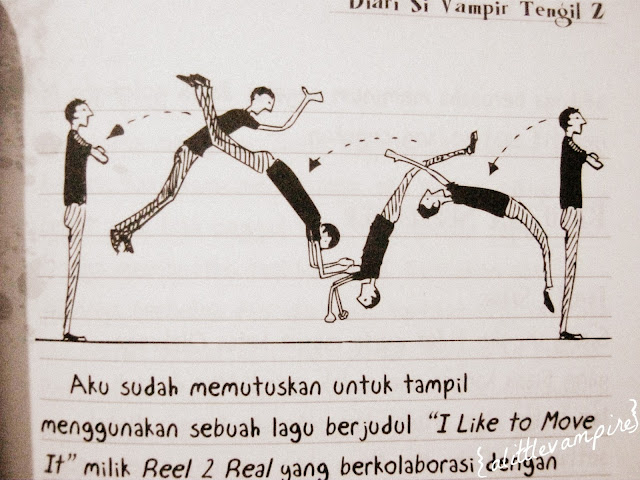 Diari Si Vampir Tengil 2
Aku sudah memutuskan untuk tampil
menggunakan sebuah lagu berjudul "I Like to Move
It" milik Reel 2 Real yang berkolaborasi dengan
{alittlevampire}